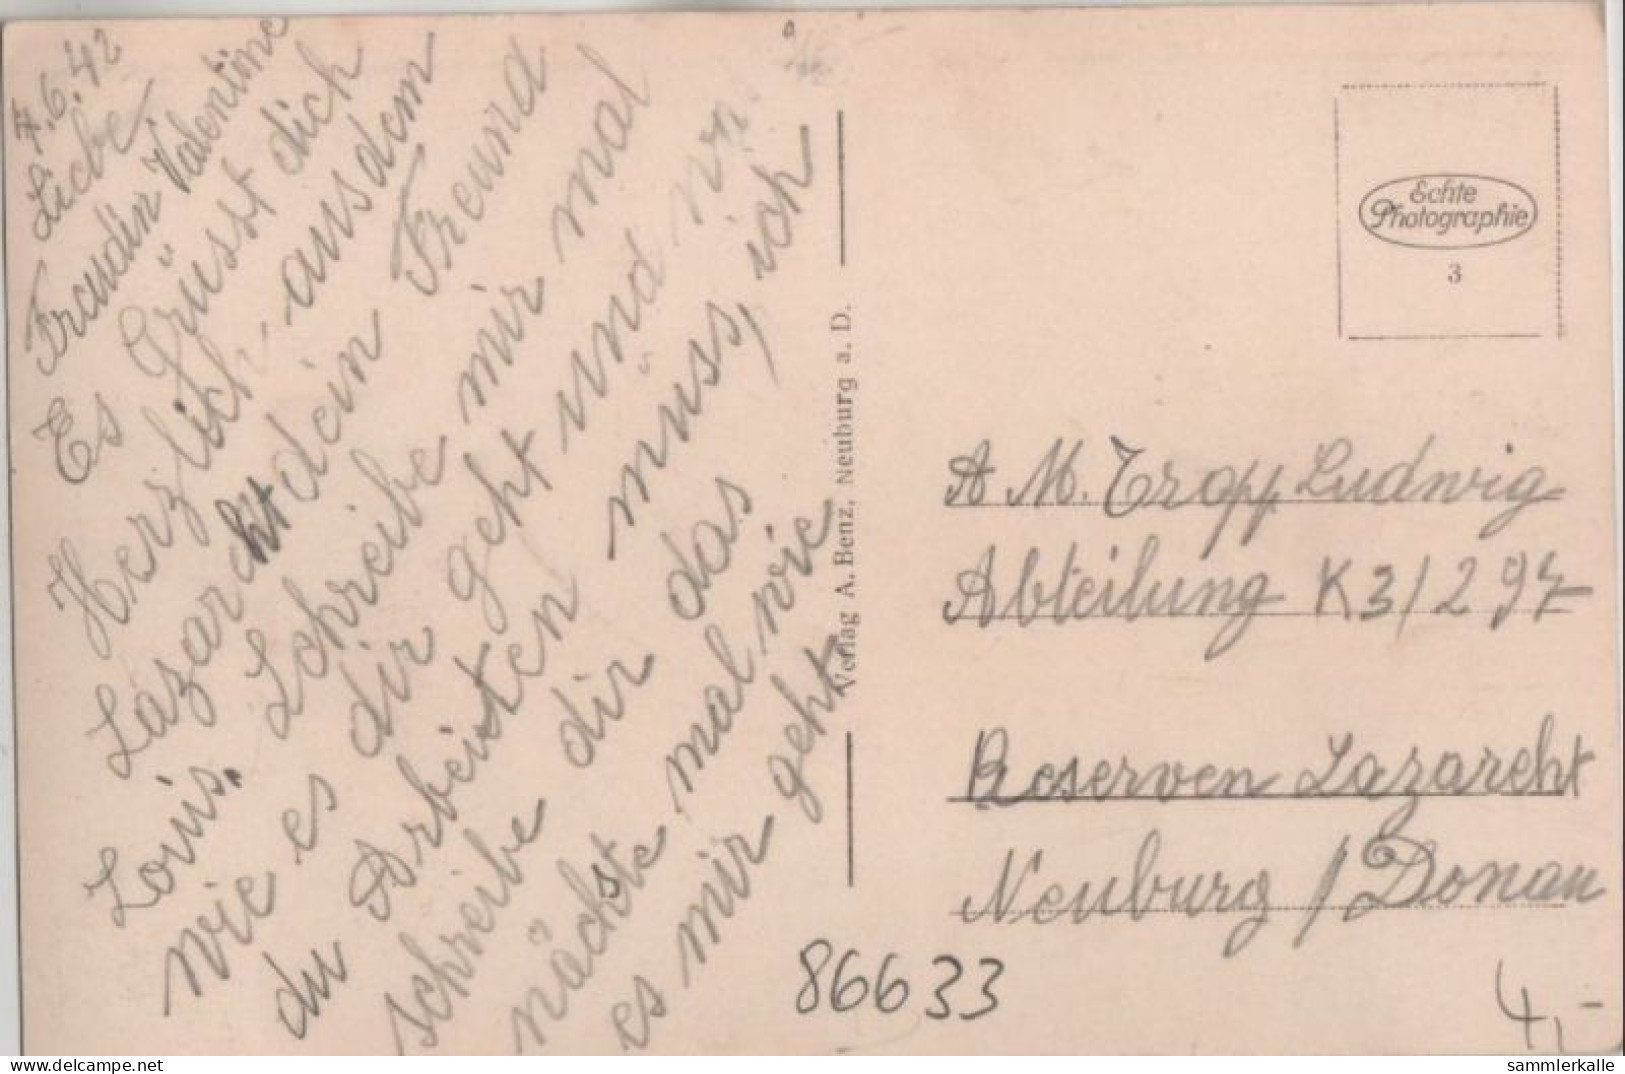 7.6.42
Liebe
Freudin Valentine
Es Grüsst dich
Herzlich, aus dem
Lazarcht dein Freund
Louis. Schreibe mir mal
wie es dir geht und
du Arbeisten müss, ich
schreibe dir das
nächste mal wie
es mir geht
Verlag A. Benz, Neuburg a. D.
Echte
Photographie
3
A M. Tropp Ludwig
Abteilung K3/297
Reserven Lazarcht
Neuburg / Donau
86633
4,-
delcampe.net
sammlerkalle